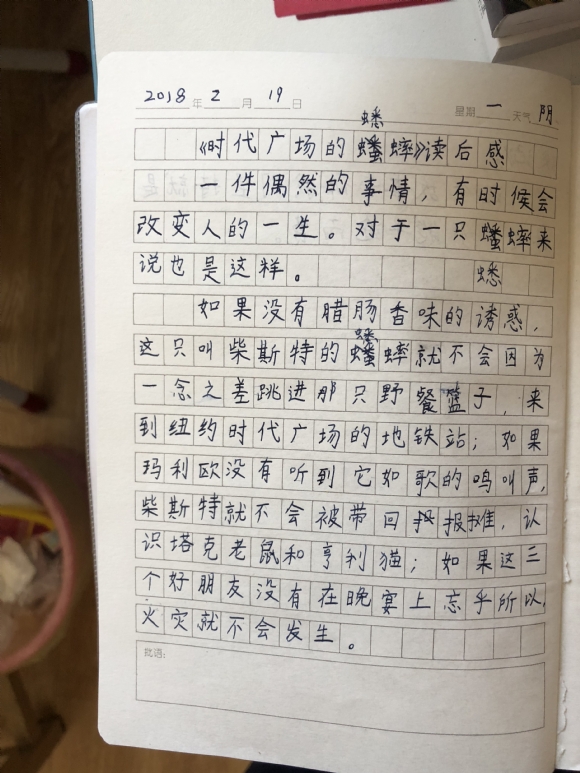 2018年2月19日 星期一 天气阴
蟋
《时代广场的蟠蟀》读后感
一件偶然的事情，有时候会
改变人的一生。对于一只蟠蟀来
说也是这样。
蟋
如果没有腊肠香味的诱惑，
蟋
这只叫柴斯特的蟠蟀就不会因为
一念之差跳进那只野餐篮子，来
到纽约时代广场的地铁站；如果
玛利欧没有听到它如歌的鸣叫声，
柴斯特就不会被带回报摊，认
识塔克老鼠和亨利猫；如果这三
个好朋友没有在晚宴上忘乎所以，
火灾就不会发生。
批语：